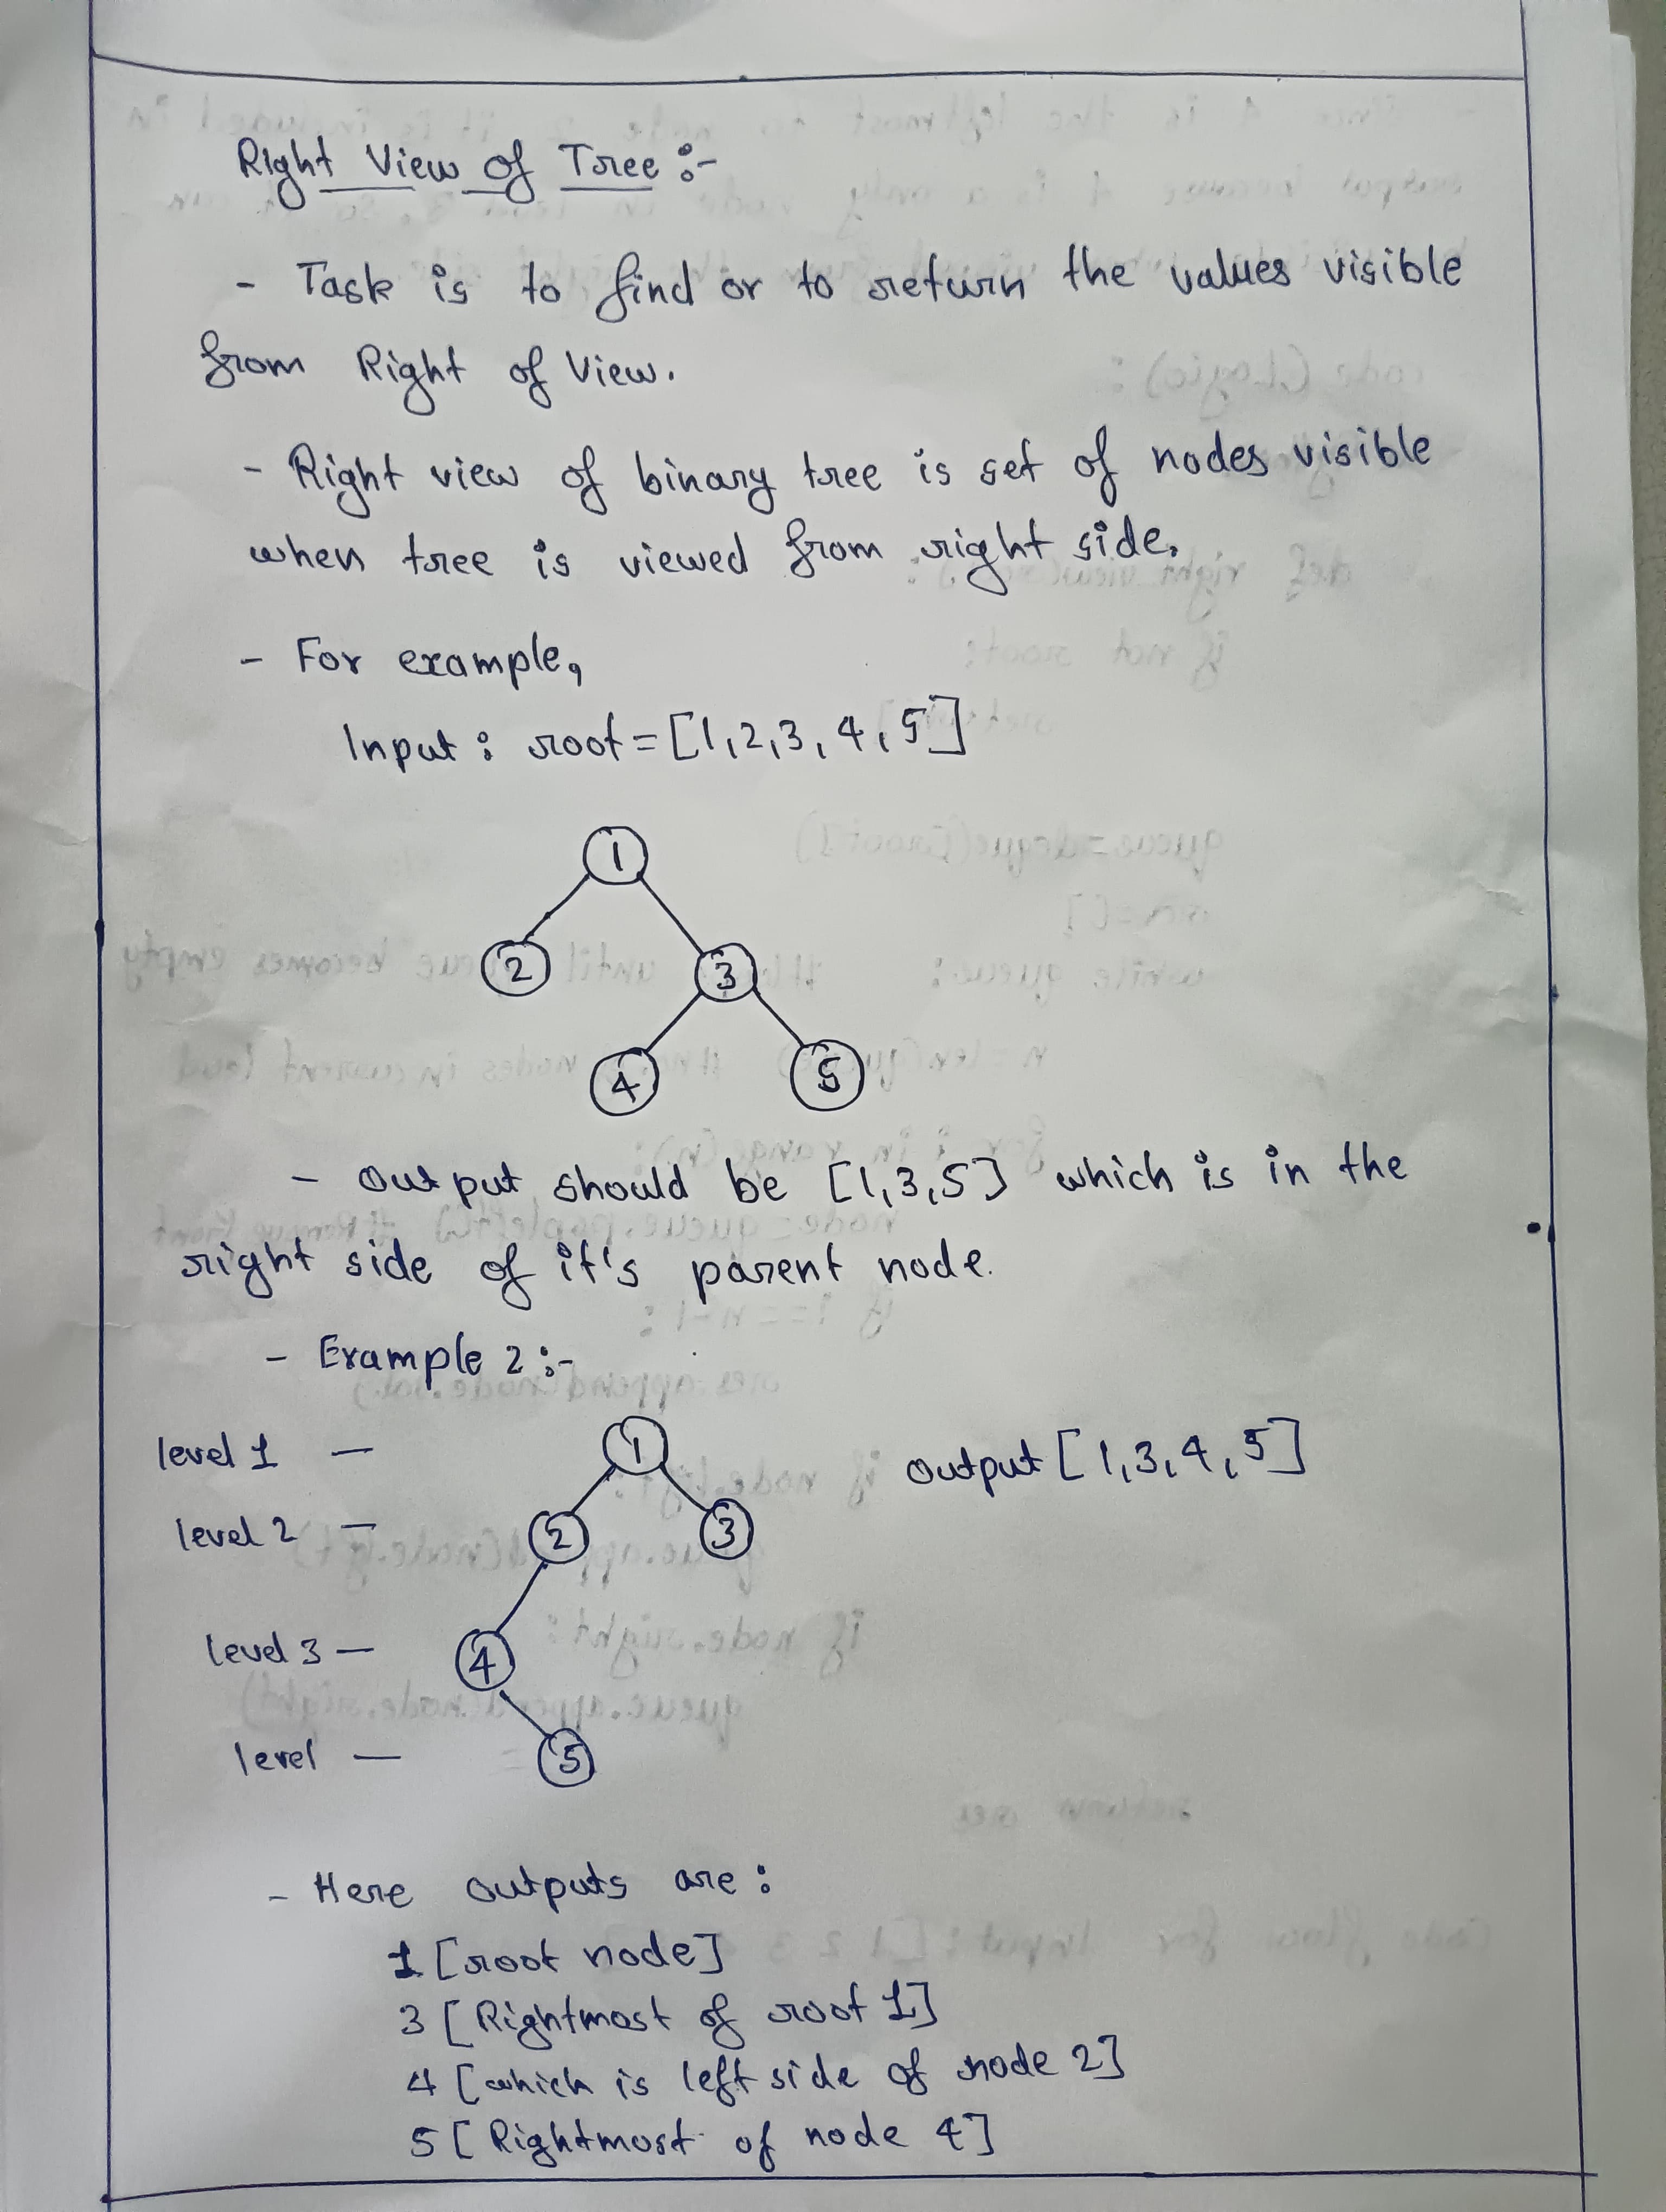 Right View of Tree :-
- Task is to find or to return the values visible
from Right of View.
- Right view of binary tree is set of nodes visible
when tree is viewed from right side.
- For example,
Input : root = [1,2,3,4,5]
1
2 3
4 5
- Output should be [1,3,5] which is in the
right side of it's parent node.
- Example 2 :-
level 1 — 1 output [1,3,4,5]
level 2 — 2 3
level 3 — 4
level — 5
- Here outputs are :
1 [root node]
3 [Rightmost of root 1]
4 [which is left side of node 2]
5 [Rightmost of node 4]